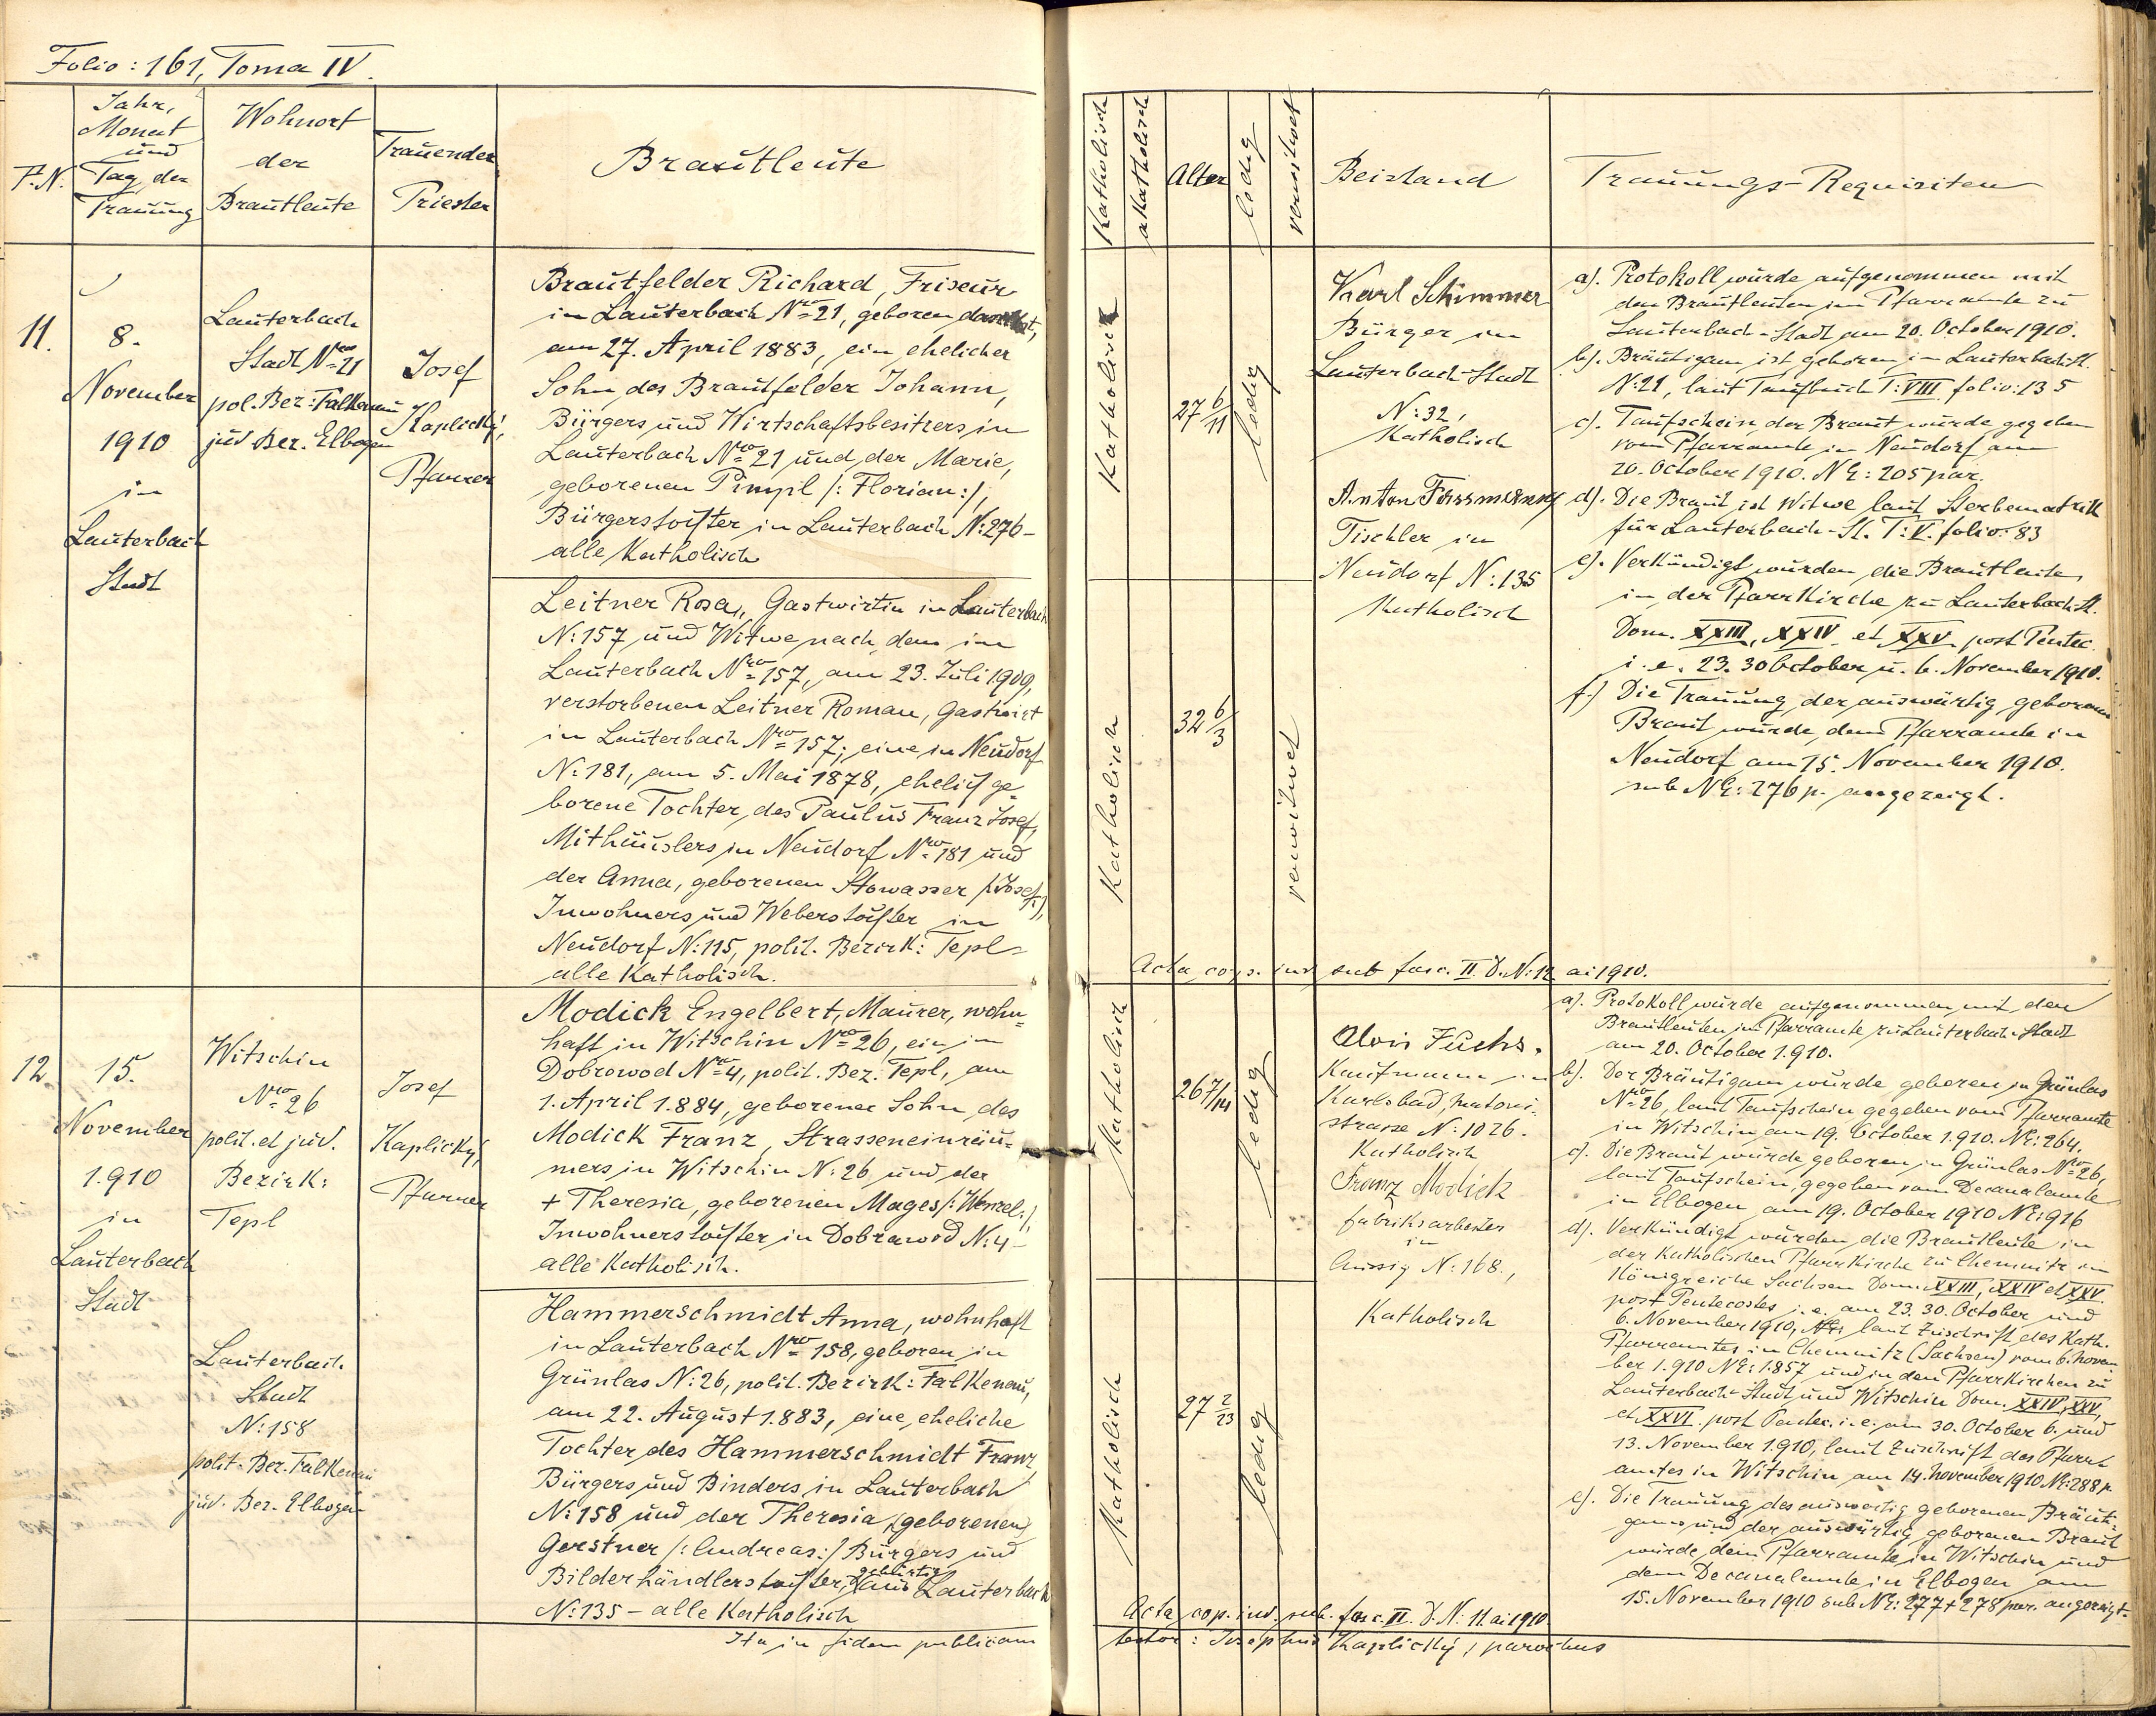 Folio: 161, Toma IV.
F.N.
Jahr,
Monat
und
Tag der
Trauung
Wohnort
der
Brautleute
Trauender
Priester
Brautleute
11.
8.
November
1910
in
Lauterbach
Stadt
Lauterbach
Stadt Nro 21
pol. Bez: Falkenau
jud. Bez. Elbogen
Josef
Kaplický,
Pfarrer
Brautfelder Richard, Friseur
in Lauterbach Nro 21, geboren daselbst,
am 27. April 1883, ein ehelicher
Sohn des Brautfelder Johann,
Bürgers und Wirtschaftsbesitzers in
Lauterbach Nro 21 und der Marie,
geborenen Pimpl /: Florian :/,
Bürgerstochter in Lauterbach N: 276 –
alle Katholisch
Leitner Rosa, Gastwirtin in Lauterbach
N: 157 und Witwe nach dem in
Lauterbach Nro 157, am 23. Juli 1909,
verstorbenen Leitner Roman, Gastwirt
in Lauterbach Nro 157; eine in Neudorf
N: 181, am 5. Mai 1878, ehelich ge-
borene Tochter des Paulus Franz Josef,
Mithäuslers in Neudorf Nro 181 und
der Anna, geborenen Stowasser /:Josef:/,
Inwohners und Weberstochter in
Neudorf N: 115, polit. Bezirk: Tepl –
alle Katholisch.
12.
15.
November
1910
in
Lauterbach
Stadt
Witschin
Nro 26
polit. et jud.
Bezirk:
Tepl
Lauterbach
Stadt
N: 158
polit. Bez. Falkenau
jud. Bez. Elbogen
Josef
Kaplický,
Pfarrer
Modick Engelbert, Maurer, wohn-
haft in Witschin Nro 26, ein in
Dobrowod Nro 4, polit. Bez. Tepl, am
1. April 1.884, geborener Sohn des
Modick Franz, Strasseneinräu-
mers in Witschin N: 26 und der
+ Theresia, geborenen Mages /: Wenzel :/,
Inwohnerstochter in Dobrawod N: 4 –
alle Katholisch.
Hammerschmidt Anna, wohnhaft
in Lauterbach Nro 158, geboren in
Grünlas N: 26, polit. Bezirk: Falkenau,
am 22. August 1.883, eine eheliche
Tochter des Hammerschmidt Franz
Bürgers und Binders in Lauterbach
N: 158 und der Theresia (geborenen)
Gerstner /: Andreas :/ Bürgers und
Bilderhändlerstochter, gebürtig aus Lauterbach
N: 135 – alle Katholisch
Ita in fidem publicam
Katholisch
akatholisch
Alter
ledig
verwitwet
Beistand
Trauungs-Requisiten
Katholisch
27 6/11
ledig
Karl Schimmer
Bürger in
Lauterbach-Stadt
N: 32,
Katholisch
Tischler in
Neudorf N: 135
Katholisch
Katholisch
32 6/3
verwitwet
a). Protokoll wurde aufgenommen mit
den Brautleuten im Pfarramte zu
Lauterbach-Stadt am 20. October 1910.
b). Bräutigam ist geboren in Lauterbach-St.
N: 21, laut Taufbuch T: VIII folio: 135
c). Taufschein der Braut wurde gegeben
vom Pfarramte in Neudorf am
20. October 1910. NE: 205 par.
d). Die Braut ist Witwe laut Sterbematrik
für Lauterbach-St. T: V. folio: 83
e). Verkündigt wurden die Brautleute
in der Pfarrkirche zu Lauterbach-St.
Dom. XXIII, XXIV et XXV post Pentec.
i. e. 23. 30 October u. 6. November 1910.
f.) Die Trauung der auswärtig geborenen
Braut wurde dem Pfarramte in
Neudorf am 15. November 1910.
sub NE: 276 p. angezeigt.
Acta cop. ind. sub fasc. II. D. N: 12 ai 1910.
Katholisch
26 7/14
ledig
Alois Fuchs.
Kaufmann in
Karlsbad,
strasse N: 1026.
Katholisch
Franz Modick
Fabriksarbeiter
in
Aussig N: 168.,
Katholisch
Katholisch
27 2/23
ledig
a). Protokoll wurde aufgenommen mit den
Brautleuten im Pfarramte zu Lauterbach-Stadt
am 20. October 1.910.
b). Der Bräutigam wurde geboren in Grünlas
Nro 26, laut Taufschein gegeben vom Pfarramte
in Witschin am 19. October 1.910. NE: 264.
c). Die Braut wurde geboren in Grünlas Nro 26,
laut Taufschein, gegeben vom Decanalamte
in Elbogen am 19. October 1910 NE: 916
d). Verkündigt wurden die Brautleute in
der Katholischen Pfarrkirche zu Chemnitz im
Königreiche Sachsen Dom. XXIII, XXIV et XXV.
post Pentecostes i. e. am 23. 30. October und
6. November 1910, laut Zuschrift des Kath.
Pfarramtes in Chemnitz (Sachsen) vom 6. Novem
ber 1.910 NE: 1.857 und in den Pfarrkirchen zu
Lauterbach-Stadt und Witschin Dom. XXIV, XXV,
et XXVI. post Pentec. i. e. am 30. October 6. und
13. November 1.910, laut Zuschrift des Pfarr-
amtes in Witschin am 14. November 1910 NE: 288 p.
e). Die Trauung des auswärtig geborenen Bräuti-
gams und der auswärtig geborenen Braut
wurde dem Pfarramte in Witschin und
dem Decanalamte in Elbogen am
15. November 1910 sub NE: 277 + 278 par. angezeigt.
Acta cop. ind. sub. fasc. II. D. N: 11. ai 1910
testor: Josephus Kaplický, parochus